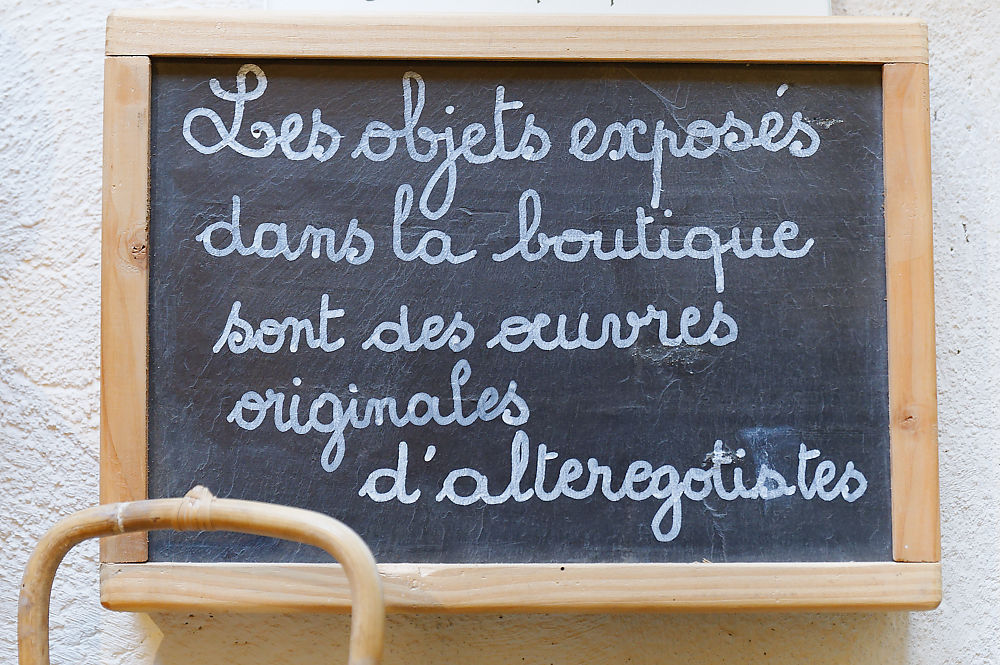 Les objets exposés
dans la boutique
sont des œuvres
originales
d'alteregotistes